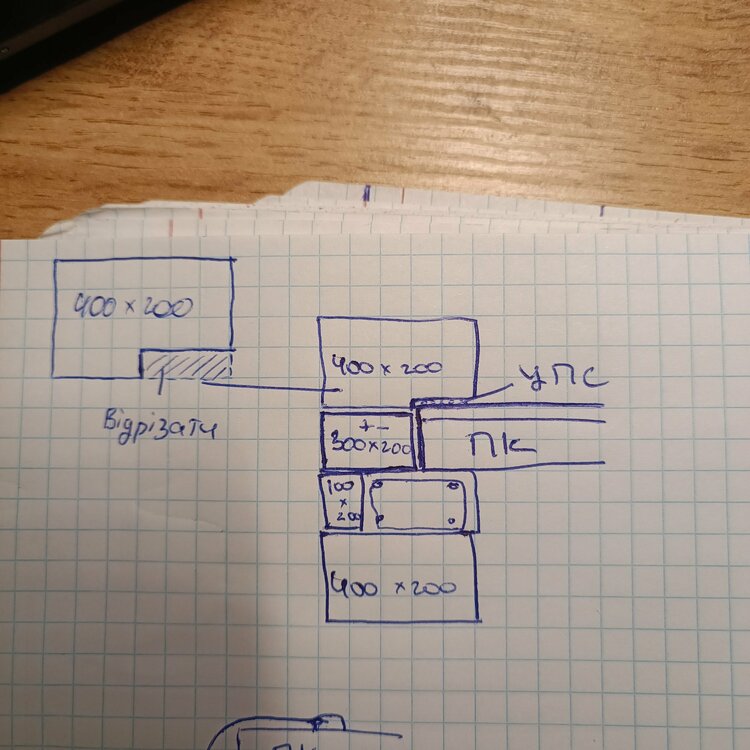 400 × 200
Відрізати
400 × 200
УПС
+ -
300 × 200
ПК
100
×
200
400 × 200
ПК